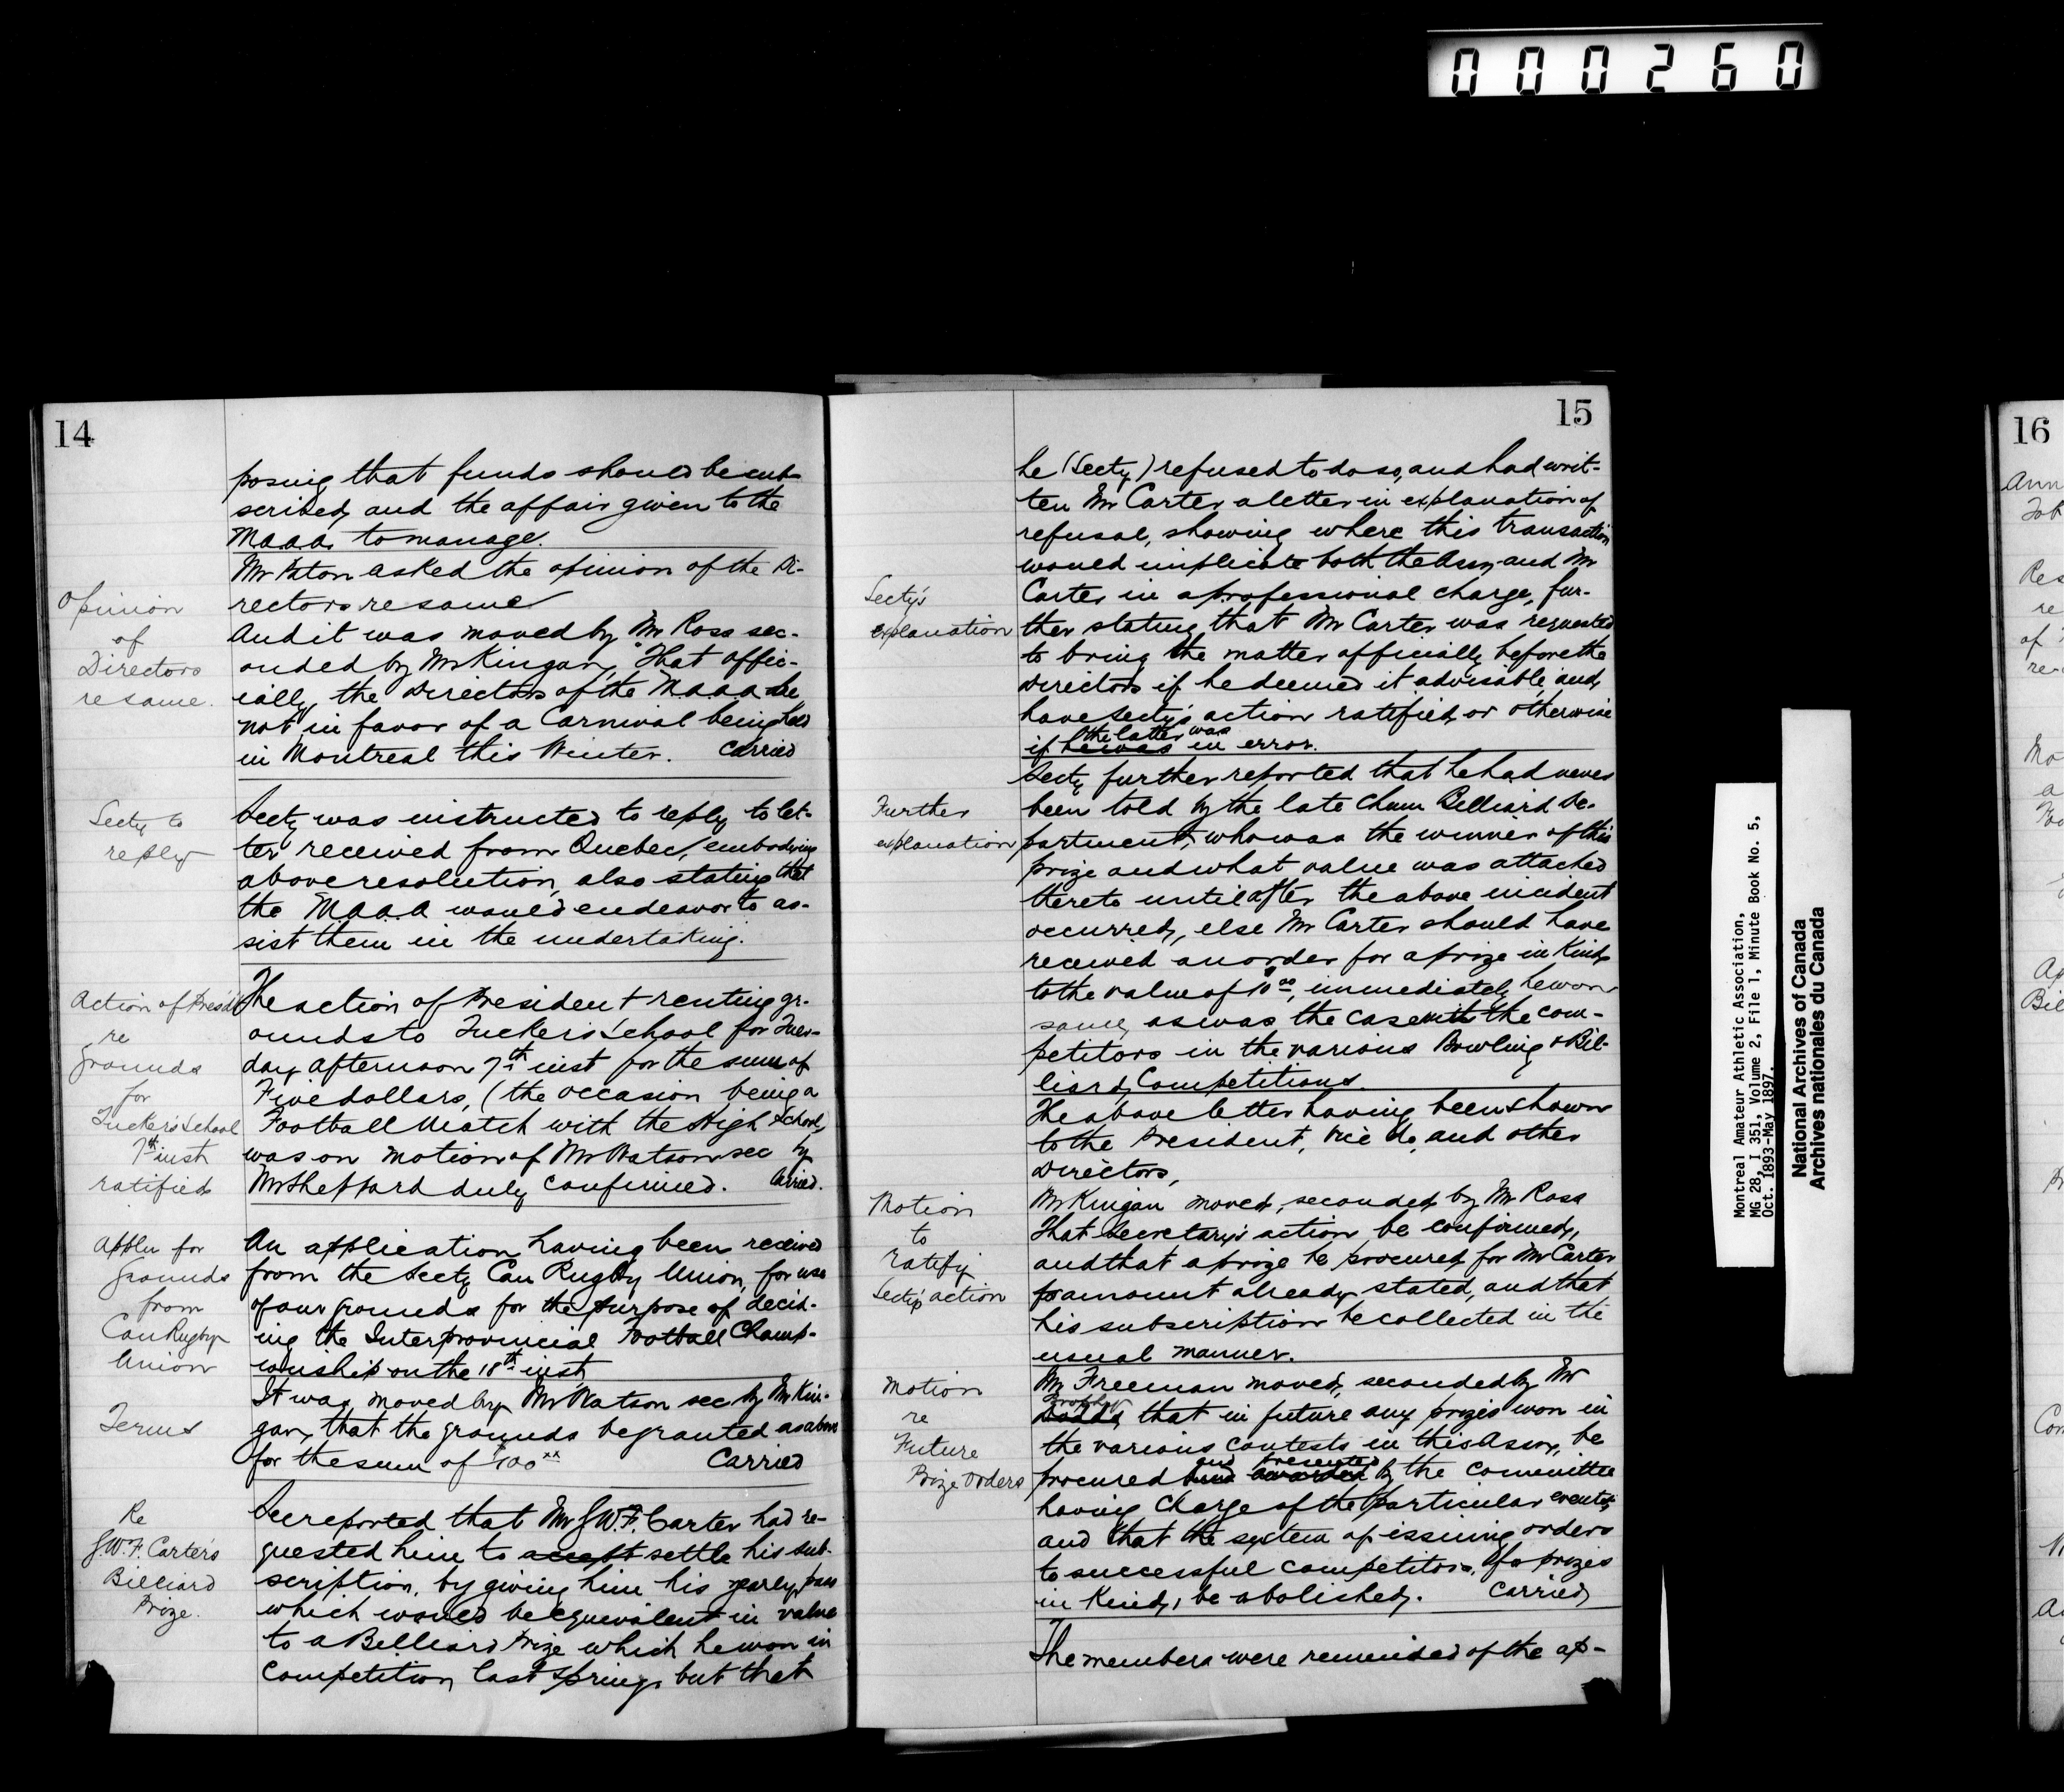 000260
14
posing that funds should be sub-
scribed, and the affair given to the
M.a.a.a. to manage.
Mr Paton asked the opinion of the Di-
rectors re same
Opinion
of
Directors
re same.
And it was moved by Mr Ross sec-
onded by Mr Kingan, "That offic-
ially, the Directors of the M.a.a.a. be
not in favor of a Carnival being held
in Montreal this Winter. Carried
Secty to
reply
Secty was instructed to reply to let-
ter received from Quebec, embodying
above resolution, also stating that
the M.a.a.a would endeavor to as-
sist them in the undertaking.
Action of Presdt
re
grounds
for
Tucker's School
7th inst
ratified
The action of President renting gr-
ounds to Tucker's School for Tues-
day afternoon 7th inst for the sum of
Five dollars, (the occasion being a
Football Match with the High School)
was on motion of Mr Watson sec by
Mr Sheppard duly confirmed. Carried.
Appln for
grounds
from
Can Rugby
Union
An application having been received
from the Secty Can Rugby Union, for use
of our grounds for the purpose of decid-
ing the Interprovincial Football Champ-
ionship on the 18th inst,
Terms
It was moved by Mr Watson sec by Mr Kin-
gan, that the grounds be granted as above
for the sum of $100xx Carried
Re
J.W.F. Carter's
Billiard
Prize.
Sec reported that Mr J.W.F. Carter had re-
quested him to accept settle his sub-
scription, by giving him his yearly pass
which would be equivalent in value
to a Billiard Prize which he won in
competition last Spring, but that
15
he (Secty) refused to do so, and had writ-
ten Mr Carter a letter in explanation of
refusal, showing where this transaction
would implicate both the Assn and Mr
Secty's
explanation
Carter in a professional charge, fur-
ther stating that Mr Carter was requested
to bring the matter officially before the
Directors if he deemed it advisable, and
have Secty's action ratified, or otherwise
if he was the latter was in error.
Further
explanation
Secty further reported that he had never
been told by the late Chmn Billiard De-
partment, who was the winner of this
prize and what value was attached
thereto until after the above incident
occurred, else Mr Carter should have
received an order for a prize in kind,
to the value of $10.00, immediately he won
same, as was the case with the com-
petitors in the various Bowling & Bil-
liard, Competitions.
The above letter having been shown
to the President, Vice do, and other
Directors,
Motion
to
ratify
Sectys action
Mr Kingan moved, seconded by Mr Ross
That Secretary's action be confirmed,
and that a prize be procured for Mr Carter
for amount already stated, and that
his subscription be collected in the
usual manner.
Motion
re
Future
Prize orders
Mr Freeman moved, seconded by Mr
that in future any prizes won in
the various contests in this Assn, be
procured and awarded and presented by the committee
having charge of the particular events,
and that the system of issuing orders
to successful competitors, for prizes
in kind, be abolished. Carried
The members were reminded of the ap-
Montreal Amateur Athletic Association,
MG 28, I 351, Volume 2, File 1, Minute Book No. 5,
Oct. 1893-May 1897.
National Archives of Canada
Archives nationales du Canada
16